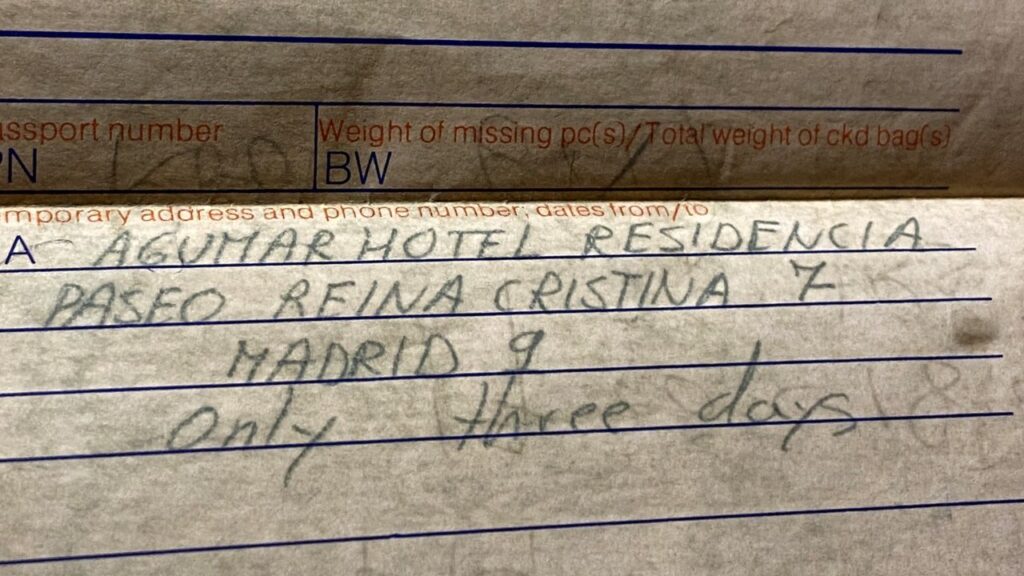 assport number Weight of missing pc(s)/Total weight of ckd bag(s)
PN BW
mporary address and phone number, dates from/to
A AGUMAR HOTEL RESIDENCIA
PASEO REINA CRISTINA 7
MADRID 9
Only three days